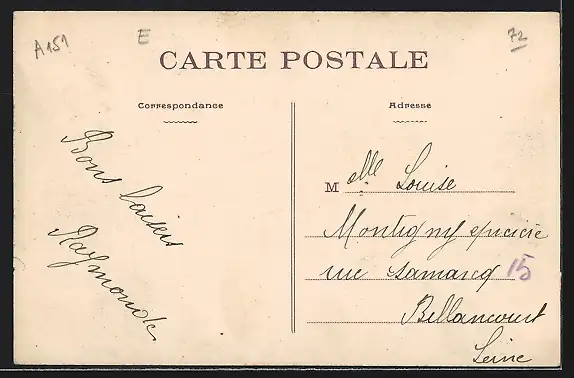 A151
E
72
CARTE POSTALE
Correspondance
Adresse
Bons baisers
Raymonde
Melle Louise
Montigny epicerie
rue Samarcq 15
Billancourt
Seine